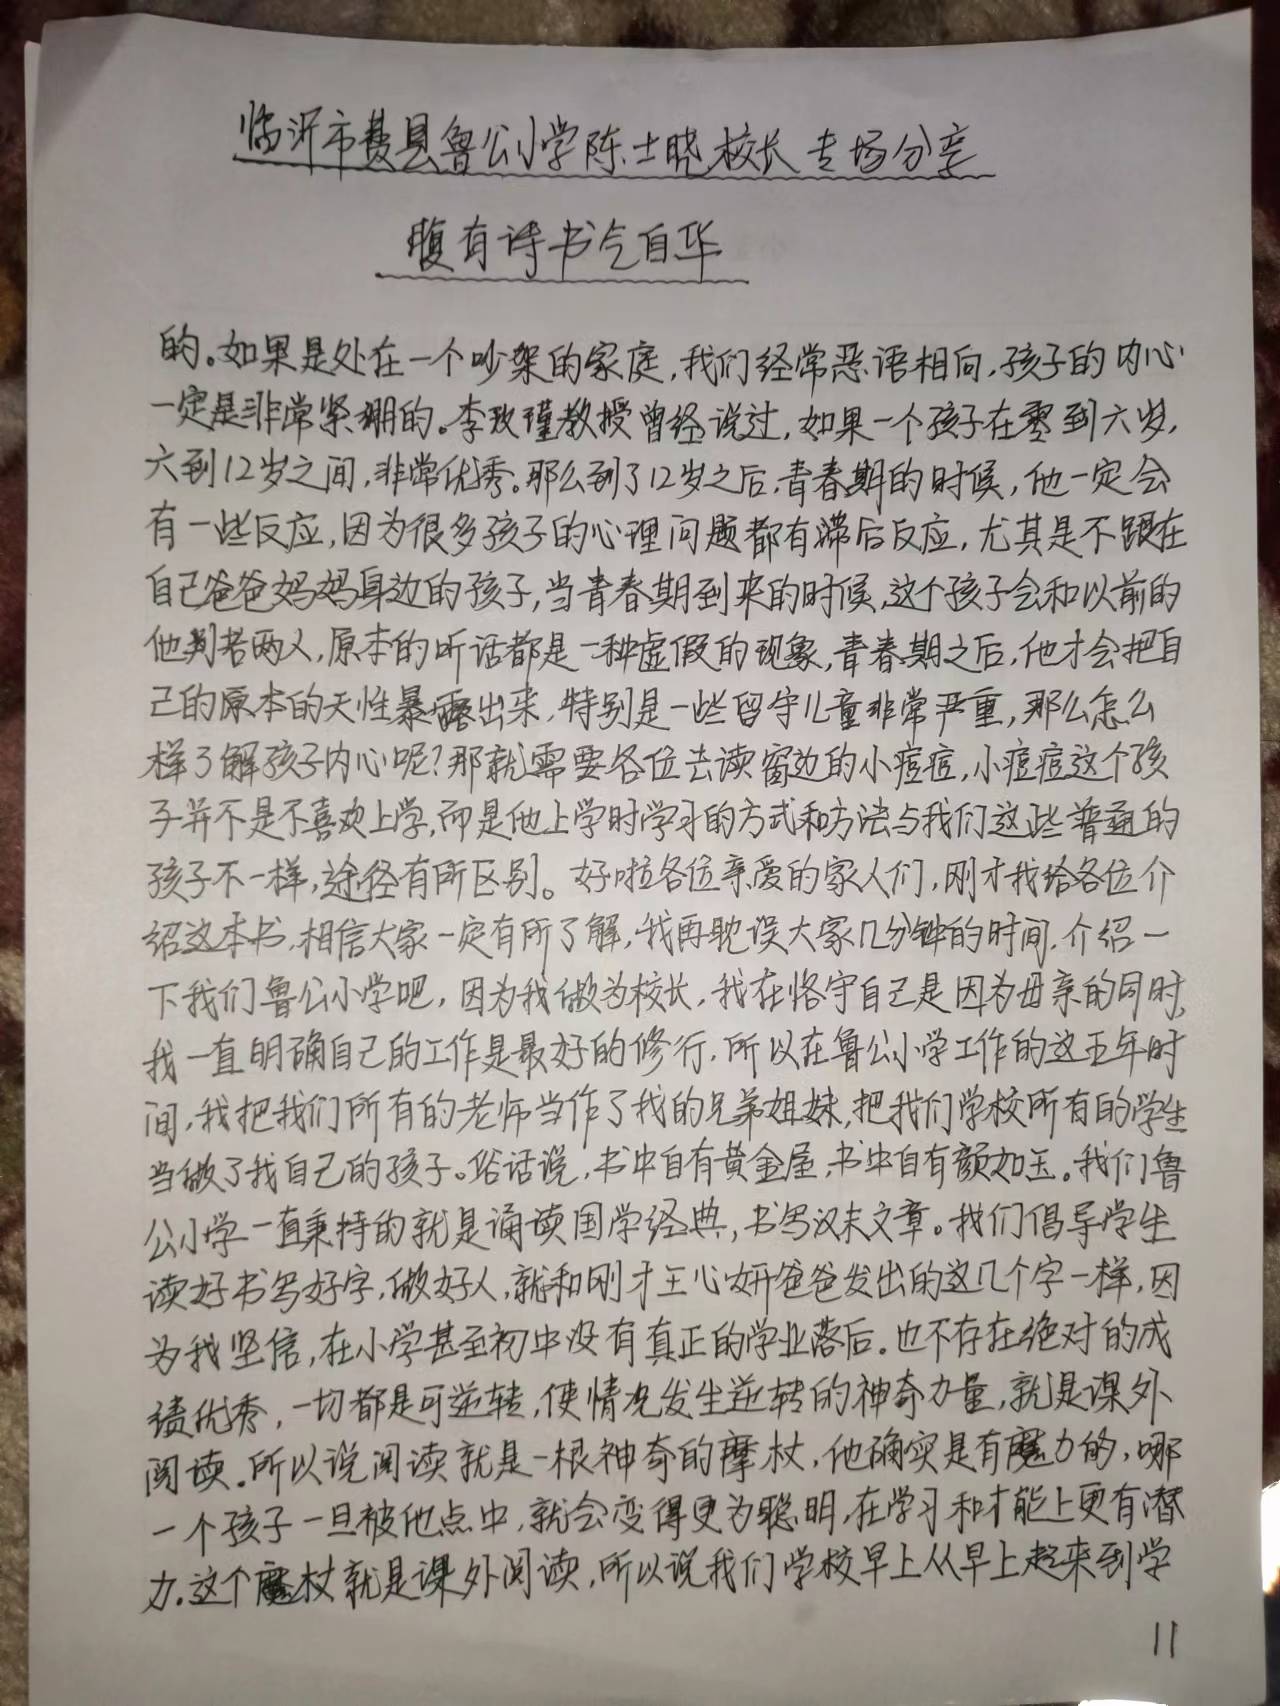 临沂市费县鲁公小学陈士晓校长专场分享
腹有诗书气自华
的。如果是处在一个吵架的家庭,我们经常恶语相向,孩子的内心
一定是非常紧绷的。李玫瑾教授曾经说过,如果一个孩子在零到六岁,
六到12岁之间,非常优秀。那么到了12岁之后,青春期的时候,他一定会
有一些反应,因为很多孩子的心理问题都有滞后反应,尤其是不跟在
自己爸爸妈妈身边的孩子,当青春期到来的时候,这个孩子会和以前的
他判若两人,原本的听话都是一种虚假的现象,青春期之后,他才会把自
己的原本的天性暴露出来,特别是一些留守儿童非常严重,那么怎么
样了解孩子内心呢?那就需要各位去读窗边的小痘痘,小痘痘这个孩
子并不是不喜欢上学,而是他上学时学习的方式和方法与我们这些普通的
孩子不一样,途径有所区别。好啦各位亲爱的家人们,刚才我给各位介
绍这本书,相信大家一定有所了解,我再耽误大家几分钟的时间,介绍一
下我们鲁公小学吧,因为我做为校长,我在恪守自己是因为母亲的同时,
我一直明确自己的工作是最好的修行,所以在鲁公小学工作的这五年时
间,我把我们所有的老师当作了我的兄弟姐妹,把我们学校所有的学生
当做了我自己的孩子。俗话说,书中自有黄金屋,书中自有颜如玉。我们鲁
公小学一直秉持的就是诵读国学经典,书写汉末文章。我们倡导学生
读好书写好字,做好人,就和刚才王心妍爸爸发出的这几个字一样,因
为我坚信,在小学甚至初中没有真正的学业落后。也不存在绝对的成
绩优秀,一切都是可逆转,使情况发生逆转的神奇力量,就是课外
阅读。所以说阅读就是一根神奇的摩杖,他确实是有魔力的,哪
一个孩子一旦被他点中,就会变得更为聪明,在学习和才能上更有潜
力。这个魔杖就是课外阅读,所以说我们学校早上从早上起来到学
11